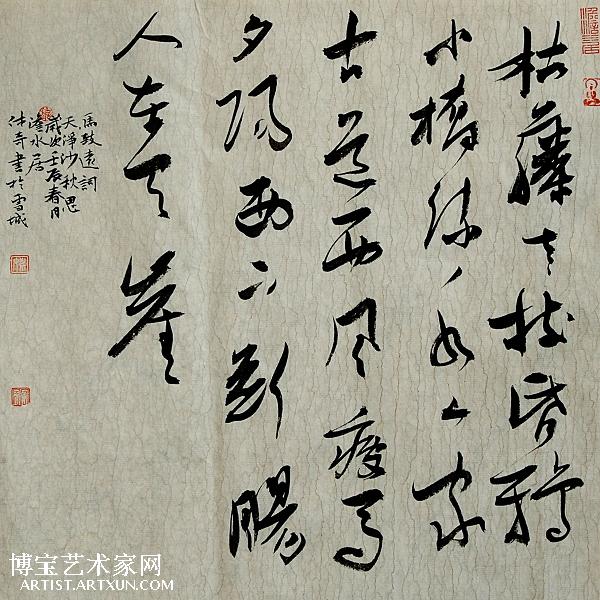 枯藤老树昏鴉
小橋流水人家
古道西风瘦馬
夕陽西下断腸
人在天崖
馬致遠詞
天淨沙秋思
歲次壬辰春月
水居
奇書於雪城
博宝艺术家网
ARTIST.ARTXUN.COM